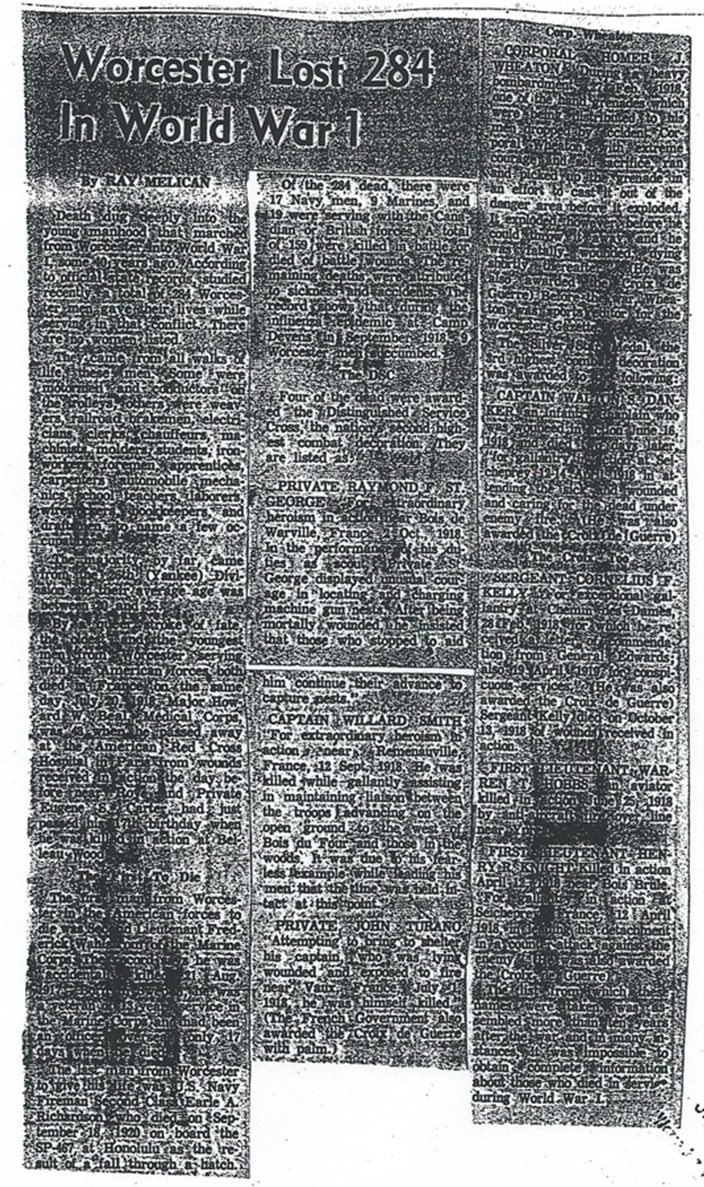 Worcester Lost 284
In World War 1
By RAY MELICAN
Death dug deeply into the
young manhood that marched
from Worcester into World War
I, some 40 years ago. According
to official state records studied
recently a total of 284 Worces-
ter men gave their lives while
serving in that conflict. There
are no women listed.
They came from all walks of
life, these men. Some were
motormen and conductors on
the trolleys, others were weav-
ers, railroad brakemen, electri-
cians, clerks, chauffeurs, ma-
chinists, molders, students, iron
workers, foremen, apprentices,
carpenters, automobile mecha-
nics, school teachers, laborers,
bookkeepers, and
to name a few oc-
The majority by far came
from the 26th (Yankee) Divi-
sion and their average age was
between 20 and
By a stroke of fate
the oldest and the youngest
men from Worcester serving
with the American forces both
died in France on the same
day, July 20, 1918. Major How-
ard W. Beal, Medical Corps,
was when he passed away
at the American Red Cross
Hospital in Paris from wounds
received in action the day be-
fore near and Private
Eugene S. Carter had just
passed his 17th birthday when
he was killed in action at Bel-
leau Wood.
The First To Die
The first man from Worces-
ter in the American forces to
die was Second Lieutenant Fred-
erick of the Marine
Corps. he was
accidentally
in
the Marine Corps and had been
an officer only 17
days when he died.
The last man from Worcester
to give his life was U.S. Navy
Fireman Second Class Earle A.
Richardson who died on Sep-
tember 18, 1920 on board the
SP-467 at Honolulu as the re-
sult of a fall through a hatch.
Of the 284 dead, there were
17 Navy men, 9 Marines, and
19 were serving with the Cana-
dian or British forces. A total
of 159 were killed in battle or
died of battle wounds. The re-
maining deaths were attributed
to sickness and accidents. The
record shows that during the
influenza epidemic at Camp
Devens in September 1918, 9
Worcester men succumbed.
The DSC
Four of the dead were award-
ed the Distinguished Service
Cross, the nation's second high-
est combat decoration. They
are listed as:
PRIVATE RAYMOND F. ST.
GEORGE "For extraordinary
heroism in action near Bois de
Warville, France, 2 Oct., 1918.
In the performance of his du-
ties as scout, Private St.
George displayed unusual cour-
age in locating and charging
machine gun nests. After being
mortally wounded, he insisted
that those who stopped to aid
him continue their advance to
capture nests."
CAPTAIN WILLARD SMITH
"For extraordinary heroism in
action near Remenauville,
France, 12 Sept., 1918. He was
killed while gallantly assisting
in maintaining liaison between
the troops advancing on the
open ground to the west of
Bois du Four and those in the
woods. It was due to his fear-
less example while leading his
men that the line was held in-
tact at this point."
PRIVATE JOHN TURANO
"Attempting to bring to shelter
his captain, who was lying
wounded and exposed to fire
near Vaux, France, July 1,
1918, he was himself killed."
(The French Government also
awarded the Croix de Guerre
with palm.)
Corp. Wheaton
CORPORAL HOMER J.
WHEATON "During a heavy
bombardment, 27 Feb., 1918,
one of the hand grenades which
were being distributed to his
was dropped by accident. Cor-
poral Wheaton with extreme
courage and self sacrifice, ran
and picked up the grenade in
an effort to cast it out of the
danger area before it exploded.
It exploded however before he
could throw it away, and he
was fatally wounded, dying
shortly thereafter." (He was
also awarded the Croix de
Guerre) Before the war, Whea-
ton was sports writer for the
Worcester Gazette.
The Silver Star Medal, the
3rd highest combat decoration
was awarded to the following:
CAPTAIN WALTON S. DAN-
KER, an infantry chaplain who
was wounded in action June 16,
1918 and died two days later,
"for gallantry in action at Sei-
cheprey, 1918 in at-
tending the sick and wounded
and caring for the dead under
enemy fire." (He was also
awarded the Croix de Guerre)
The Croix
SERGEANT CORNELIUS F.
KELLY "For exceptional gal-
lantry at Chemin des Dames,
28 Feb., 1918 for which he re-
ceived a letter of commenda-
tion from General Edwards,
also 19 April 1918 for conspi-
cuous services." (He was also
awarded the Croix de Guerre)
Sergeant Kelly died on October
13, 1918 of wounds received in
action.
FIRST LIEUTENANT WAR-
REN T. HOBBS an aviator
killed in action June 25, 1918
by anti-aircraft fire over line
near
FIRST LIEUTENANT HEN-
RY R. KNIGHT Killed in action
April 12, 1918 near Bois Brule.
"For gallantry in action at
Seicheprey, France, 12 April
1918 in leading his detachment
in a counter-attack against the
enemy." (He was also awarded
the Croix de Guerre)
The list from which these
names were taken was as-
sembled more than ten years
after the war and in many in-
stances it was impossible to
obtain complete information
about those who died in service
during World War I.